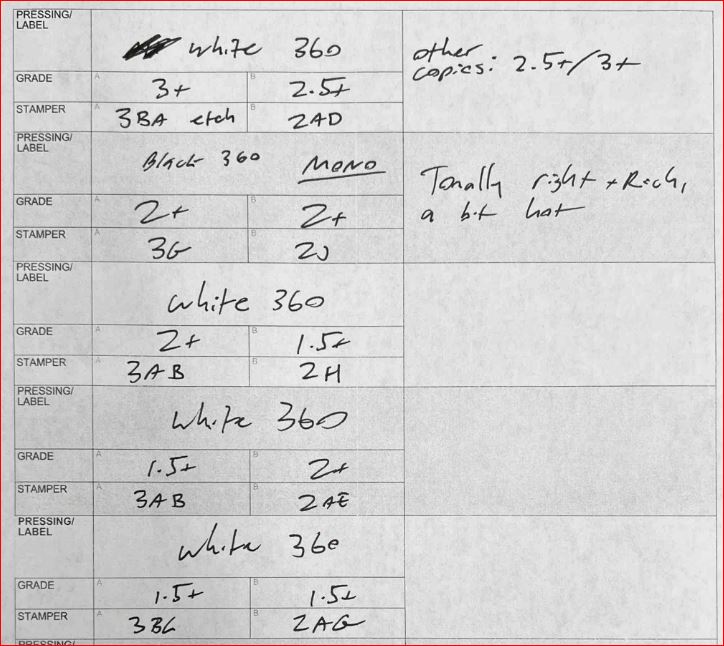 PRESSING/
LABEL
white 360
other
copies: 2.5+/3+
GRADE
A
3+
B
2.5+
STAMPER
A
3BA etch
B
2AD
PRESSING/
LABEL
Black 360 MONO
Tonally right + Rich,
a bit hot
GRADE
A
2+
B
2+
STAMPER
A
3G
B
2J
PRESSING/
LABEL
white 360
GRADE
A
2+
B
1.5+
STAMPER
A
3AB
B
2H
PRESSING/
LABEL
white 360
GRADE
A
1.5+
B
2+
STAMPER
A
3AB
B
2AE
PRESSING/
LABEL
white 360
GRADE
A
1.5+
B
1.5+
STAMPER
A
B
2AG
PRESSING/